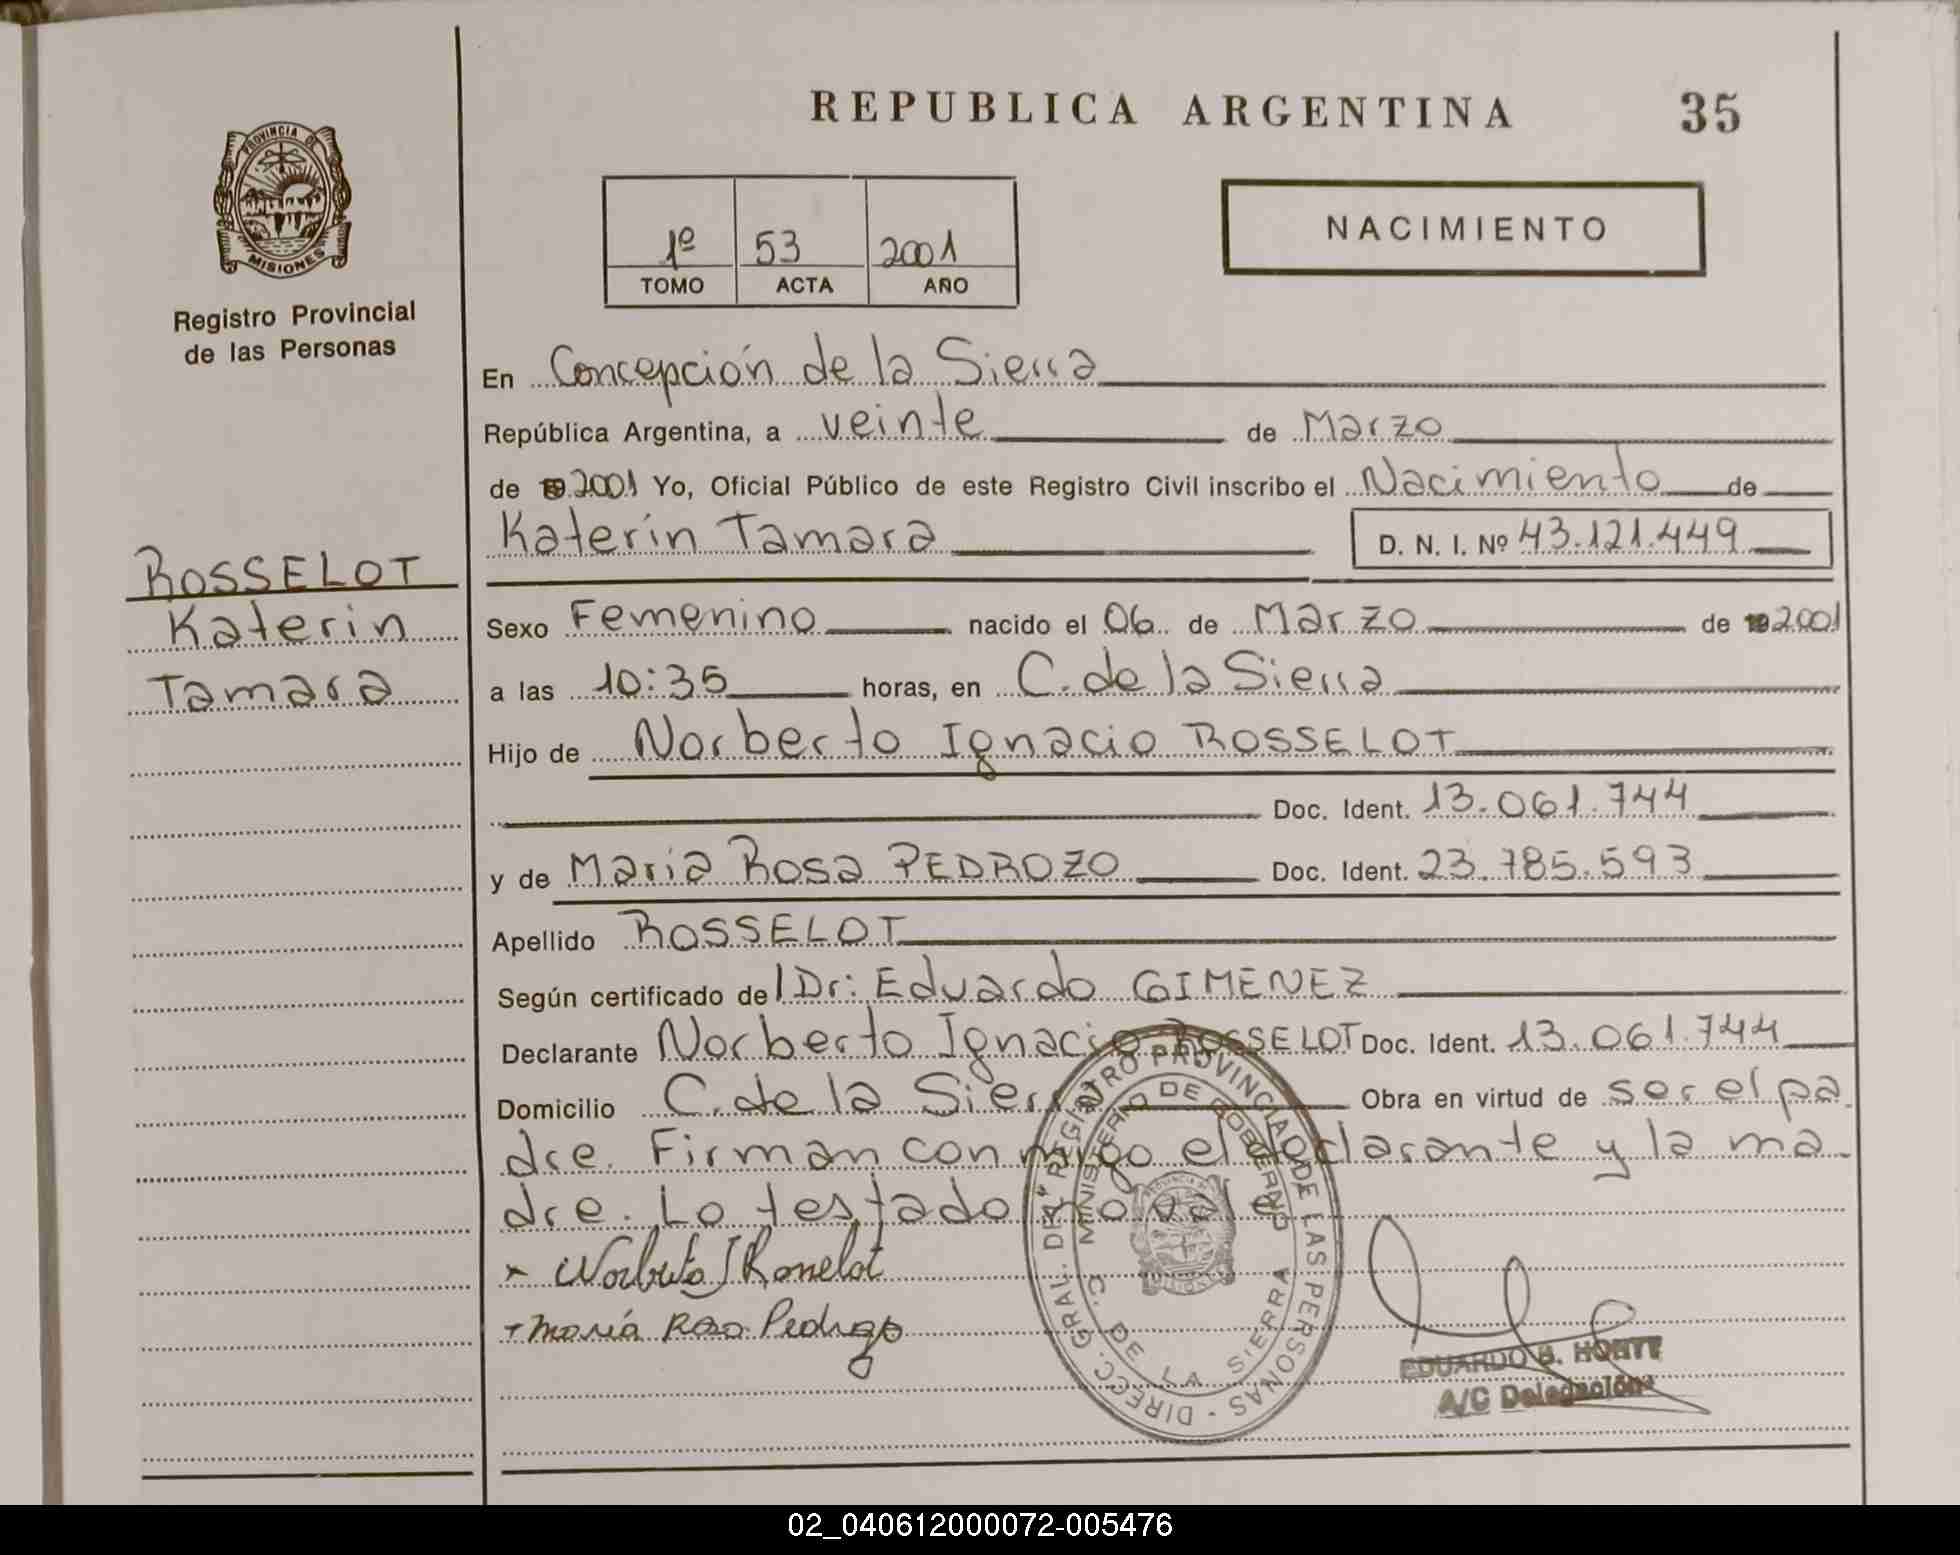 REPUBLICA ARGENTINA
35
PROVINCIA DE
MISIONES
Registro Provincial
de las Personas
1º 53 2001
TOMO ACTA AÑO
NACIMIENTO
En Concepción de la Sierra
República Argentina, a veinte de Marzo
de 19 2001 Yo, Oficial Público de este Registro Civil inscribo el Nacimiento de
Katerin Tamara
D. N. I. Nº 43.121.449
ROSSELOT
Katerin
Tamara
Sexo Femenino nacido el 06 de Marzo de 19 2001
a las 10:35 horas, en C. de la Sierra
Hijo de Norberto Ignacio ROSSELOT
Doc. Ident. 13.061.744
y de Maria Rosa PEDROZO Doc. Ident. 23.785.593
Apellido ROSSELOT
Según certificado del Dr: Eduardo GIMENEZ
Declarante Norberto Ignacio ROSSELOT Doc. Ident. 13.061.744
Domicilio C. de la Sierra Obra en virtud de ser el pa
dre. Firman conmigo el declarante y la ma
dre. Lo testado no vale
x Norberto I Rosselot
+ María Rosa Pedrozo
DIRECC. GRAL. DEL REGISTRO PROVINCIAL DE LAS PERSONAS
MINISTERIO DE GOBIERNO
C. DE LA SIERRA
EDUARDO B. HORTT
A/C Delegación
02_040612000072-005476